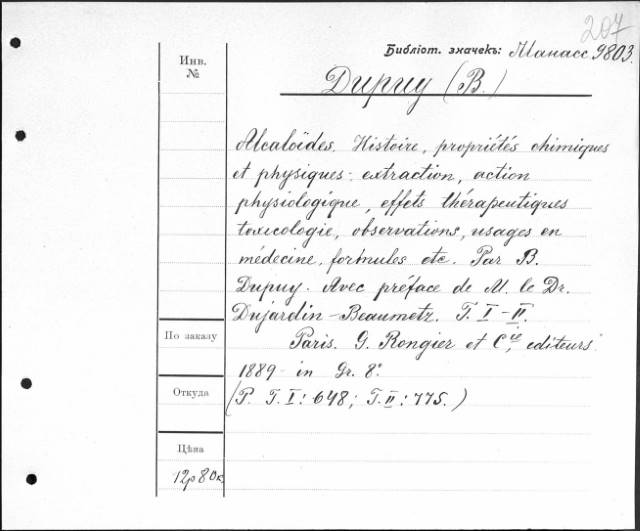 207
Библіот. значекъ: Манасс. 9803.
Инв.
№
Dupuy (B.)
Alcaloïdes. Histoire, propriétés chimiques
et physiques: extraction, action
physiologique, effets thérapeutiques
toxicologie, observations, usages en
médecine, formules etc. Par B.
Dupuy. Avec préface de M. le Dr.
Dujardin-Beaumetz. T. I-II.
Paris. G. Rongier et Cie, editeurs
1889 in Gr. 8°.
(P. T. I: 648; T. II: 775.)
По заказу
Откуда
Цѣна
12р80к